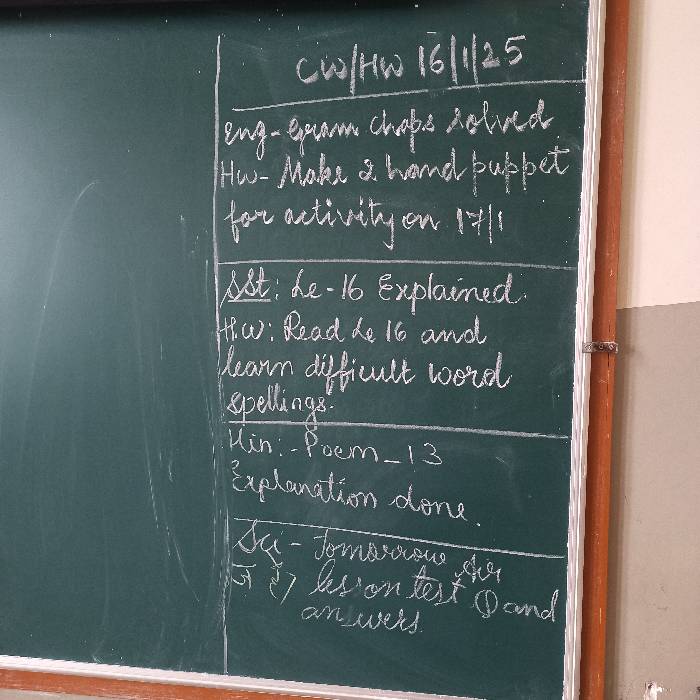 CW/HW 16/1/25
Eng-Gram chaps solved
Hw- Make 2 hand puppet
for activity on 17/1
SSt: Le-16 Explained.
H.W: Read Le 16 and
learn difficult word
spellings.
Hin:- Poem_13
Explanation done.
Sci - Tomorrow Air
lesson test Q and
answers